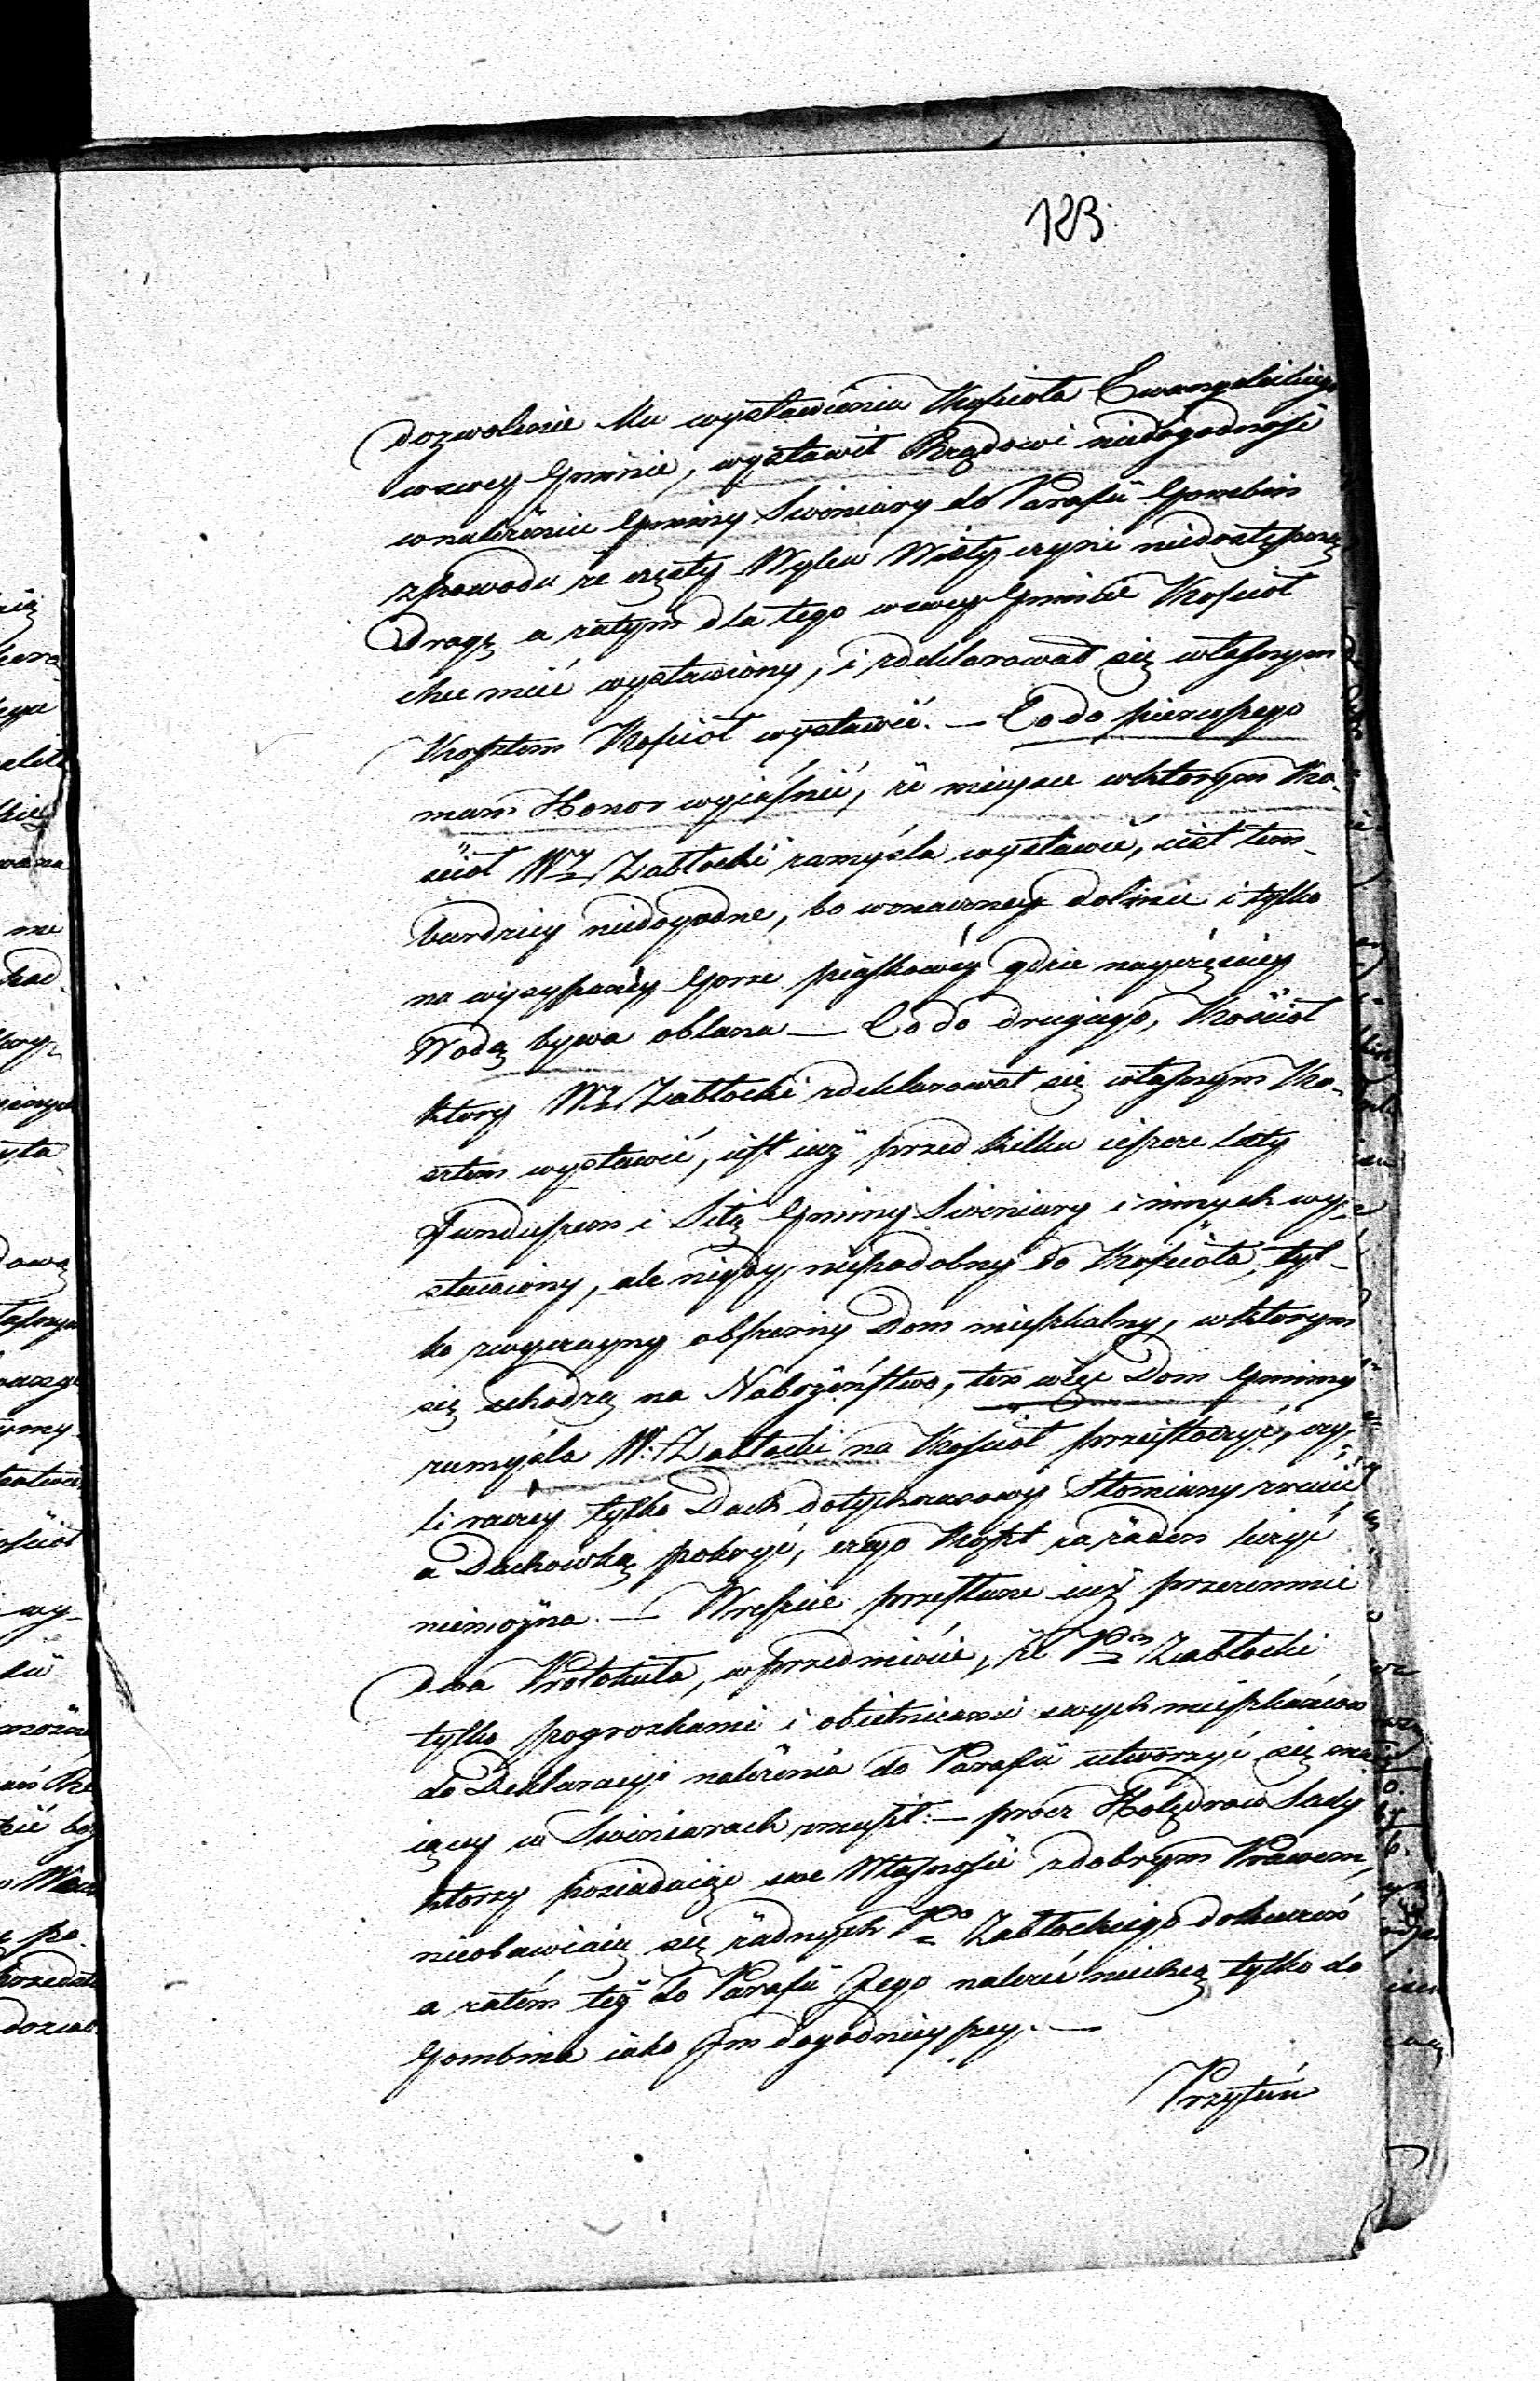 123.
dozwolenie Mu wystawienia Kościoła Ewangelickiego
wswey Gminie, wystawił Rządowi niedogodność
wnależenie Gminy Swiniary do Parafii Gombin
zpowodu że częsty Wylew Wisły czyni niedostępną
Drogę a zatym dla tego wswey Gminie Kościół
chce mieć wystawiony, i zdeklarował się własnym
Kosztem Kościół wystawić. — Co do pierwszego
mam Honor wyiaśnić, że mieysce wktorym Ko-
ściół WJ Zabłocki zamyśla wystawić, iest tem
bardziey niedogodne, bo wznaczney dolinie i tylko
na wysypaney Gorze piaskowéy gdzie nayczęściey
Wodą bywa oblana — Co do drugiego, Kościół
ktory WJ Zabłocki zdeklarował się własnym Ko-
sztem wystawić, iest iuż przed kilku ieszcze laty
Funduszem i Siłą Gminy Swiniary i innych wy-
stawiony, ale nigdy niepodobny do Kościoła, tyl-
ko zwyczayny obszerny Dom mieszkalny, wktorym
się schodzą na Nabożeństwo, ten więc Dom Gminy
zamyśla W: Zabłocki na Kościół przeistoczyć, czy-
li raczey tylko Dach dotychczasowy Słomiany zrzucić
a Dachówką pokryć, czego Koszt za żaden liczyć
niemożna. — Wreszcie przesłane iuż przezemnie
dwa Protokuła, wprzedmiocie, że Pan Zabłocki
tylko pogrozkami i obietnicami swych mieszkańcow
do Deklaracyi należenia do Parafii utworzyć się ma-
iącey w Swiniarach zmusił: — procz Holędrow Sady
ktorzy posiadaiąc swe Własności zdobrym Prawem,
nieobawiaią się żadnych Pa Zabłockiego dokuczeń
a zatém też do Parafii Jego należeć niechcą tylko do
Gombina iako Im dogodnieyszey. —
Przytém